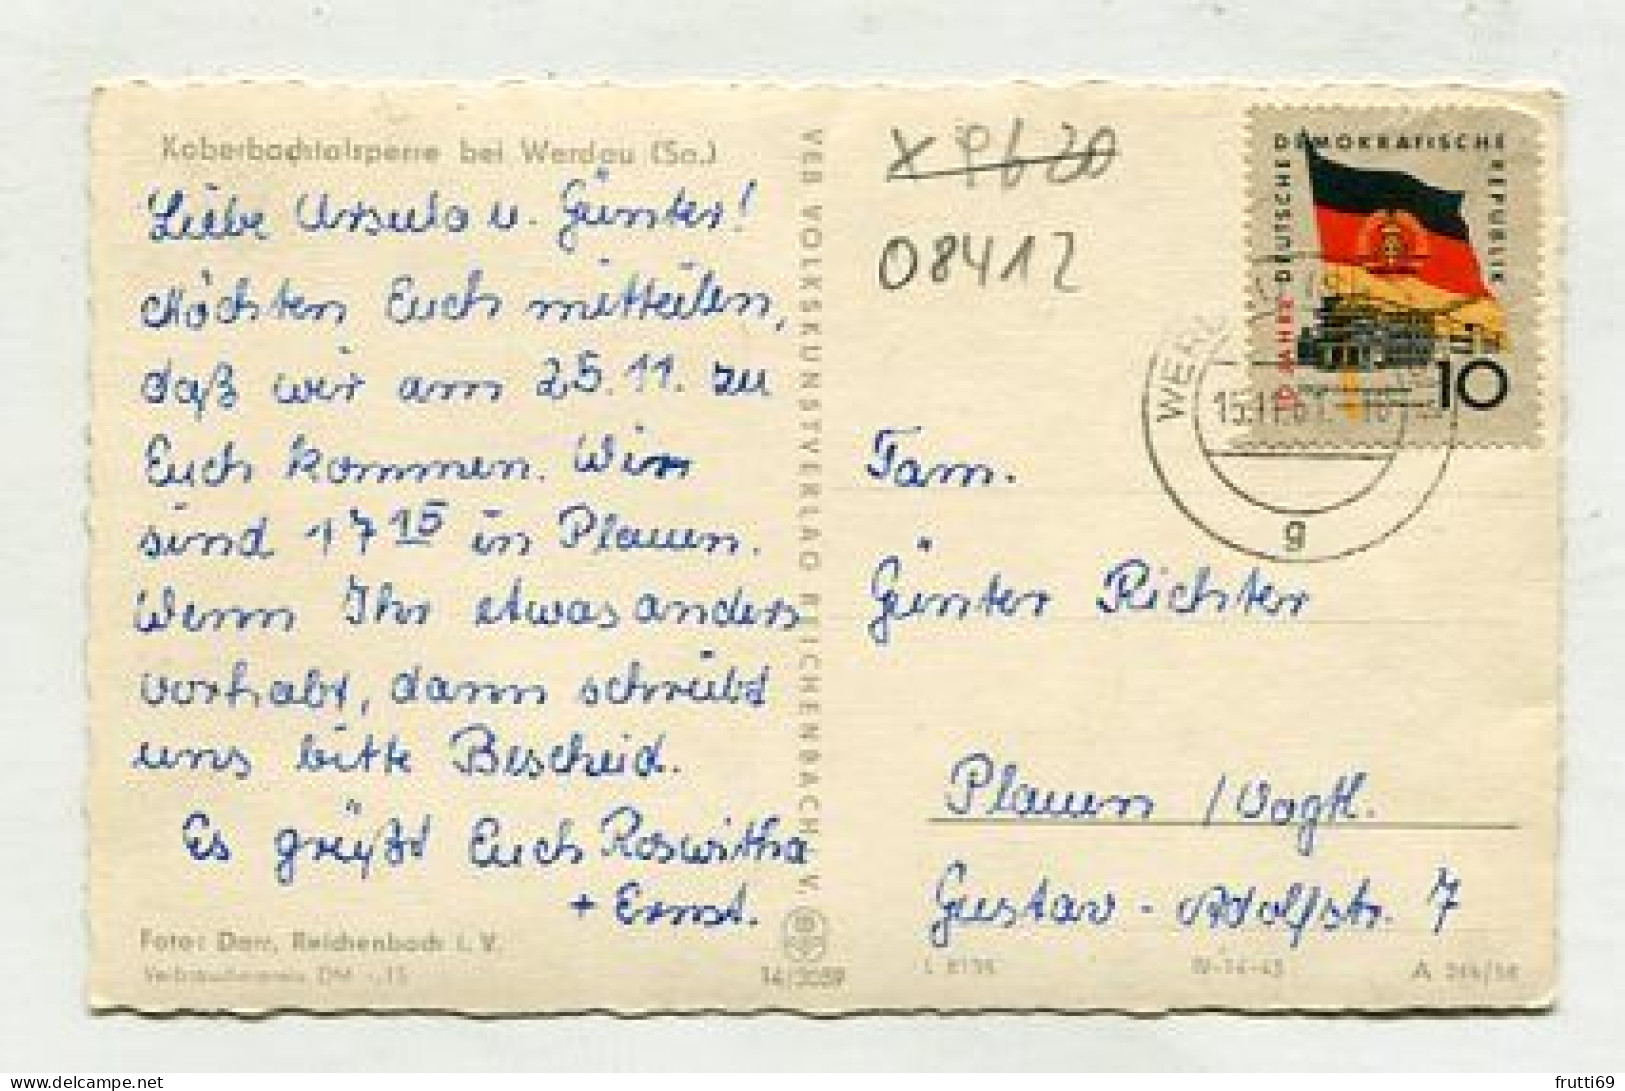 Koberbachtalsperre bei Werdau (Sa.)
Liebe Ursula u. Günter!
Möchten Euch mitteilen,
daß wir am 25.11. zu
Euch kommen. Wir
sind 17 15 in Plauen.
Wenn Ihr etwas anders
vorhabt, dann schreibt
uns bitte Bescheid.
Es grüßt Euch Roswitha
+ Ernst.
Foto: Darr, Reichenbach i. V.
Verbraucherpreis DM -,15
VEB VOLKSKUNSTVERLAG REICHENBACH V.
14/3059
08412
DEUTSCHE DEMOKRATISCHE REPUBLIK
10 JAHRE
10
15.11.61
g
Fam.
Günter Richter
Plauen /Vogtl.
Gustav-Adolfstr. 7
IV-14-45
A
frutti69